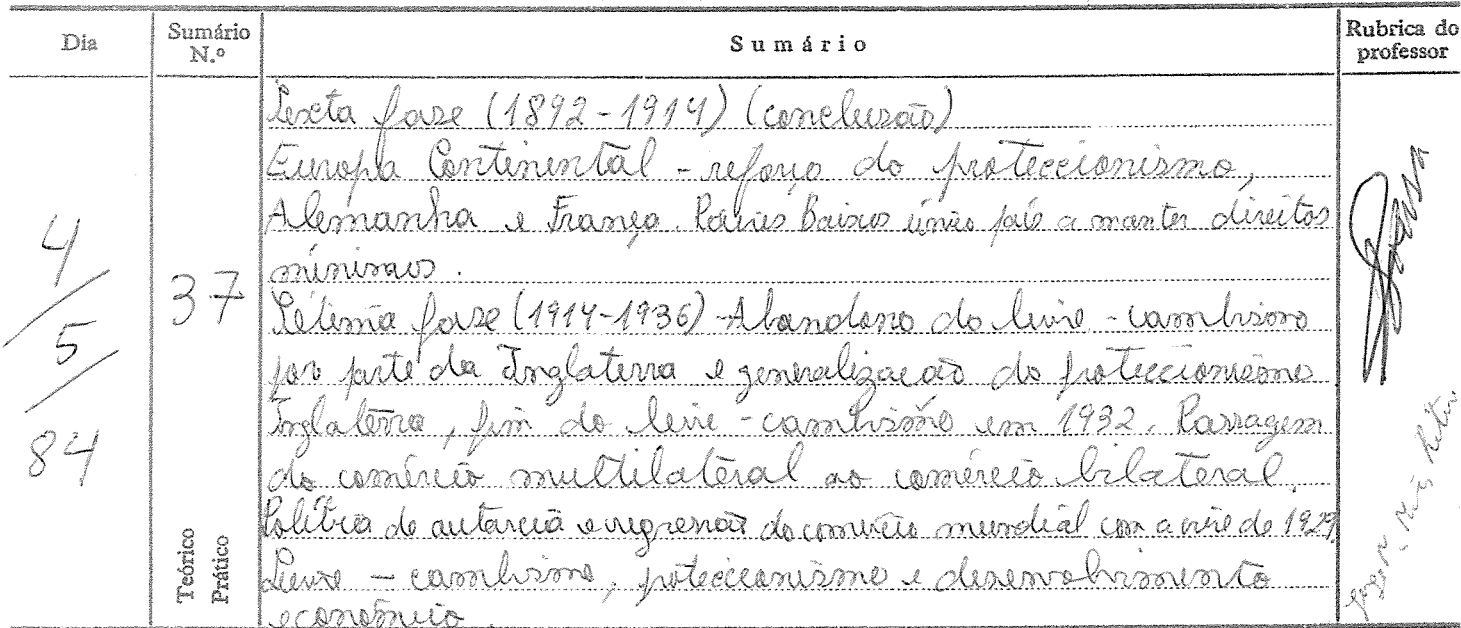 Dia
Sumário N.º
Sumário
Rubrica do professor
4/5/84
37
Teórico
Prático
Sexta fase (1892-1914) (conclusão)
Europa Continental - reforço do proteccionismo,
Alemanha e França. Países Baixos único país a manter direitos
mínimos.
Sétima fase (1914-1936) - Abandono do livre-cambismo
por parte da Inglaterra e generalização do proteccionismo
Inglaterra, fim do livre-cambismo em 1932. Passagem
do comércio multilateral ao comércio bilateral.
Política de autarcia e regressão do comércio mundial com a crise de 1929.
Livre-cambismo, proteccionismo e desenvolvimento
económico.